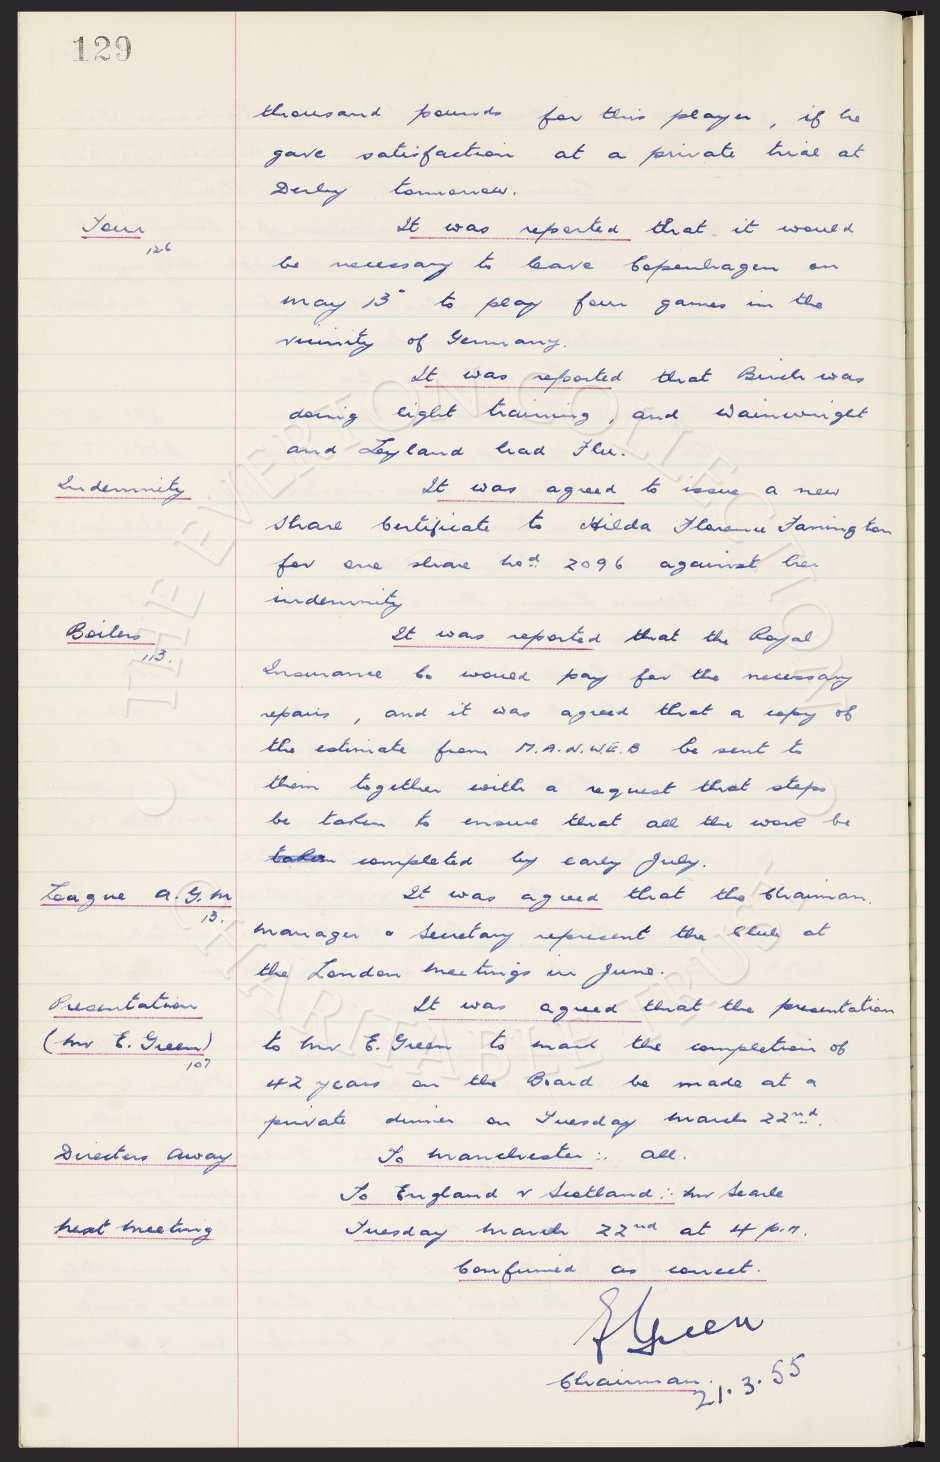 129
thousand pounds for this player, if he
gave satisfaction at a private trial at
Derby tomorrow.
Tour It was reported that it would
126
be necessary to leave Copenhagen on
May 13" to play four games in the
vicinity of Germany.
It was reported that Birch was
doing light training, and Wainwright
and Leyland had Flu.
Indemnity It was agreed to issue a new
Share Certificate to Hilda Florence Farrington
for one share no.d 2096 against her
indemnity
Boilers It was reported that the Royal
113.
Insurance Co would pay for the necessary
repairs, and it was agreed that a copy of
the estimate from M.A.N.WE.B be sent to
them together with a request that steps
be taken to ensure that all the work be
taken completed by early July.
League A.G.M It was agreed that the Chairman,
13.
Manager & Secretary represent the Club at
the London meetings in June.
Presentation It was agreed that the presentation
(Mr E. Green) to Mr E. Green to mark the completion of
107
42 years on the Board be made at a
private dinner on Tuesday March 22nd.
Directors Away To Manchester :. all.
To England v Scotland :. Mr Searle
Next Meeting Tuesday March 22nd at 4 p.m.
Confirmed as correct.
E Green
Chairman.
21.3.55
© THE EVERTON COLLECTION
CHARITABLE TRUST